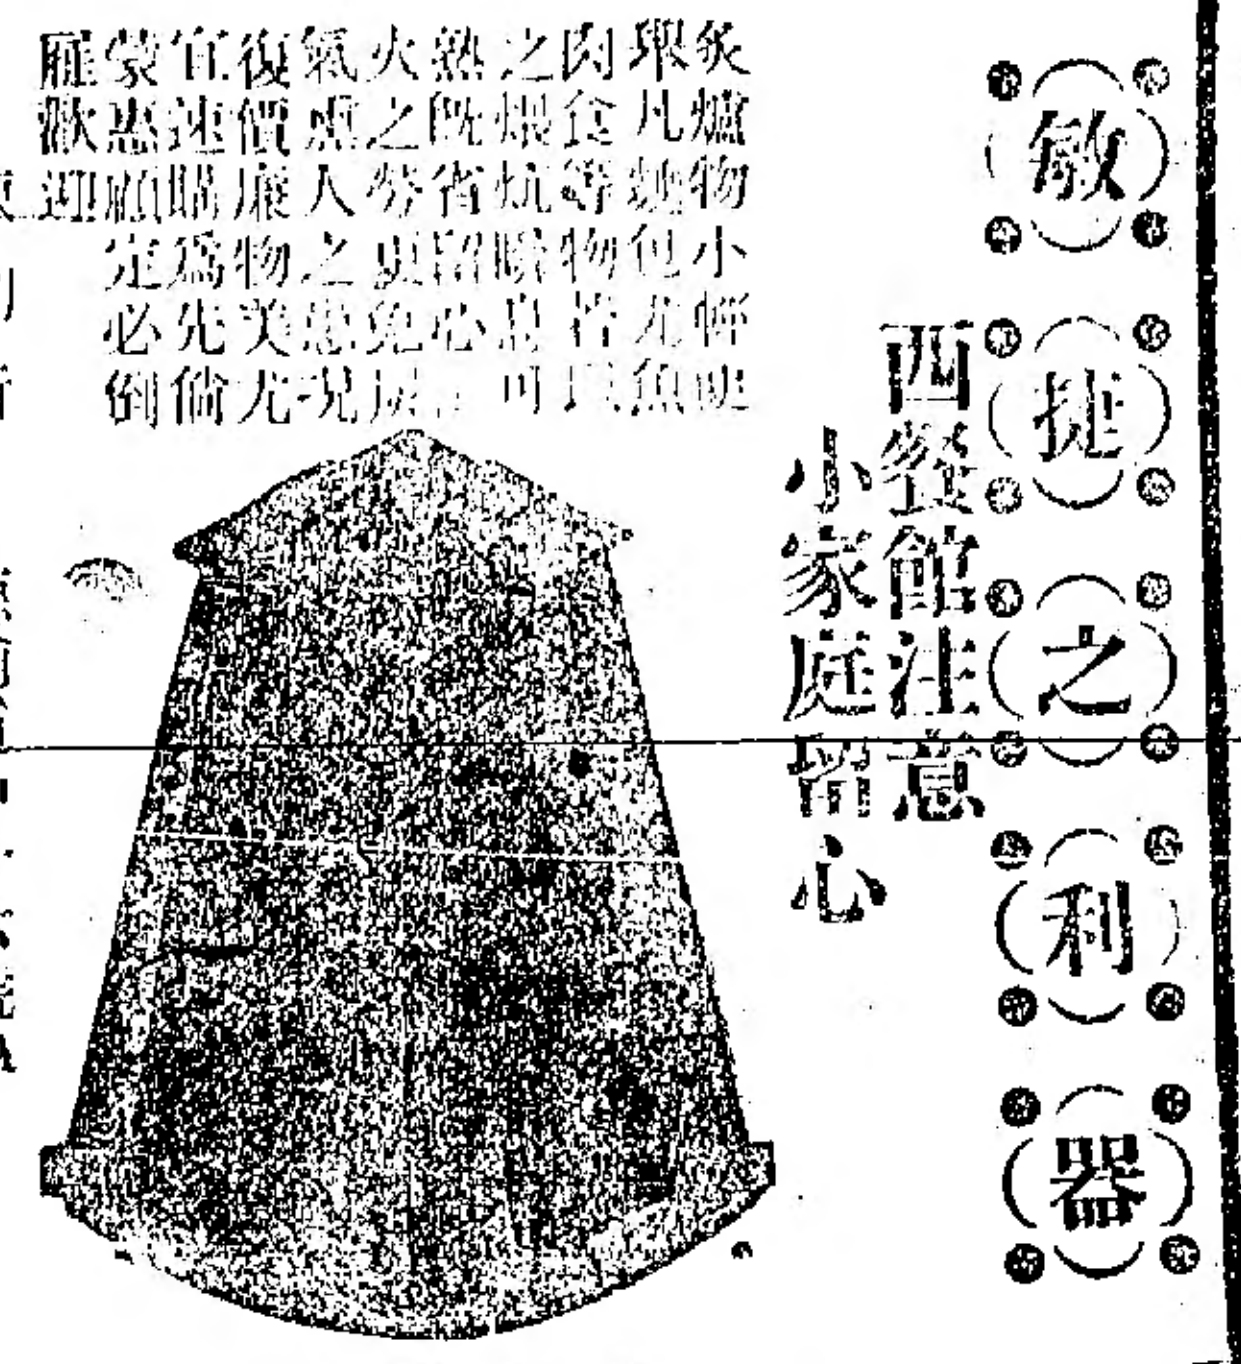 敏捷之利器
西餐館注意
小家庭留心
炙爐物小輕便
舉凡麵包尤魚
肉食等物皆
之煨炕瞬息可
熟既省留心
火之勞更免
氣熏人之患現
復價廉物美尤
宜速購為先倘
蒙惠顧定必倒
歡迎